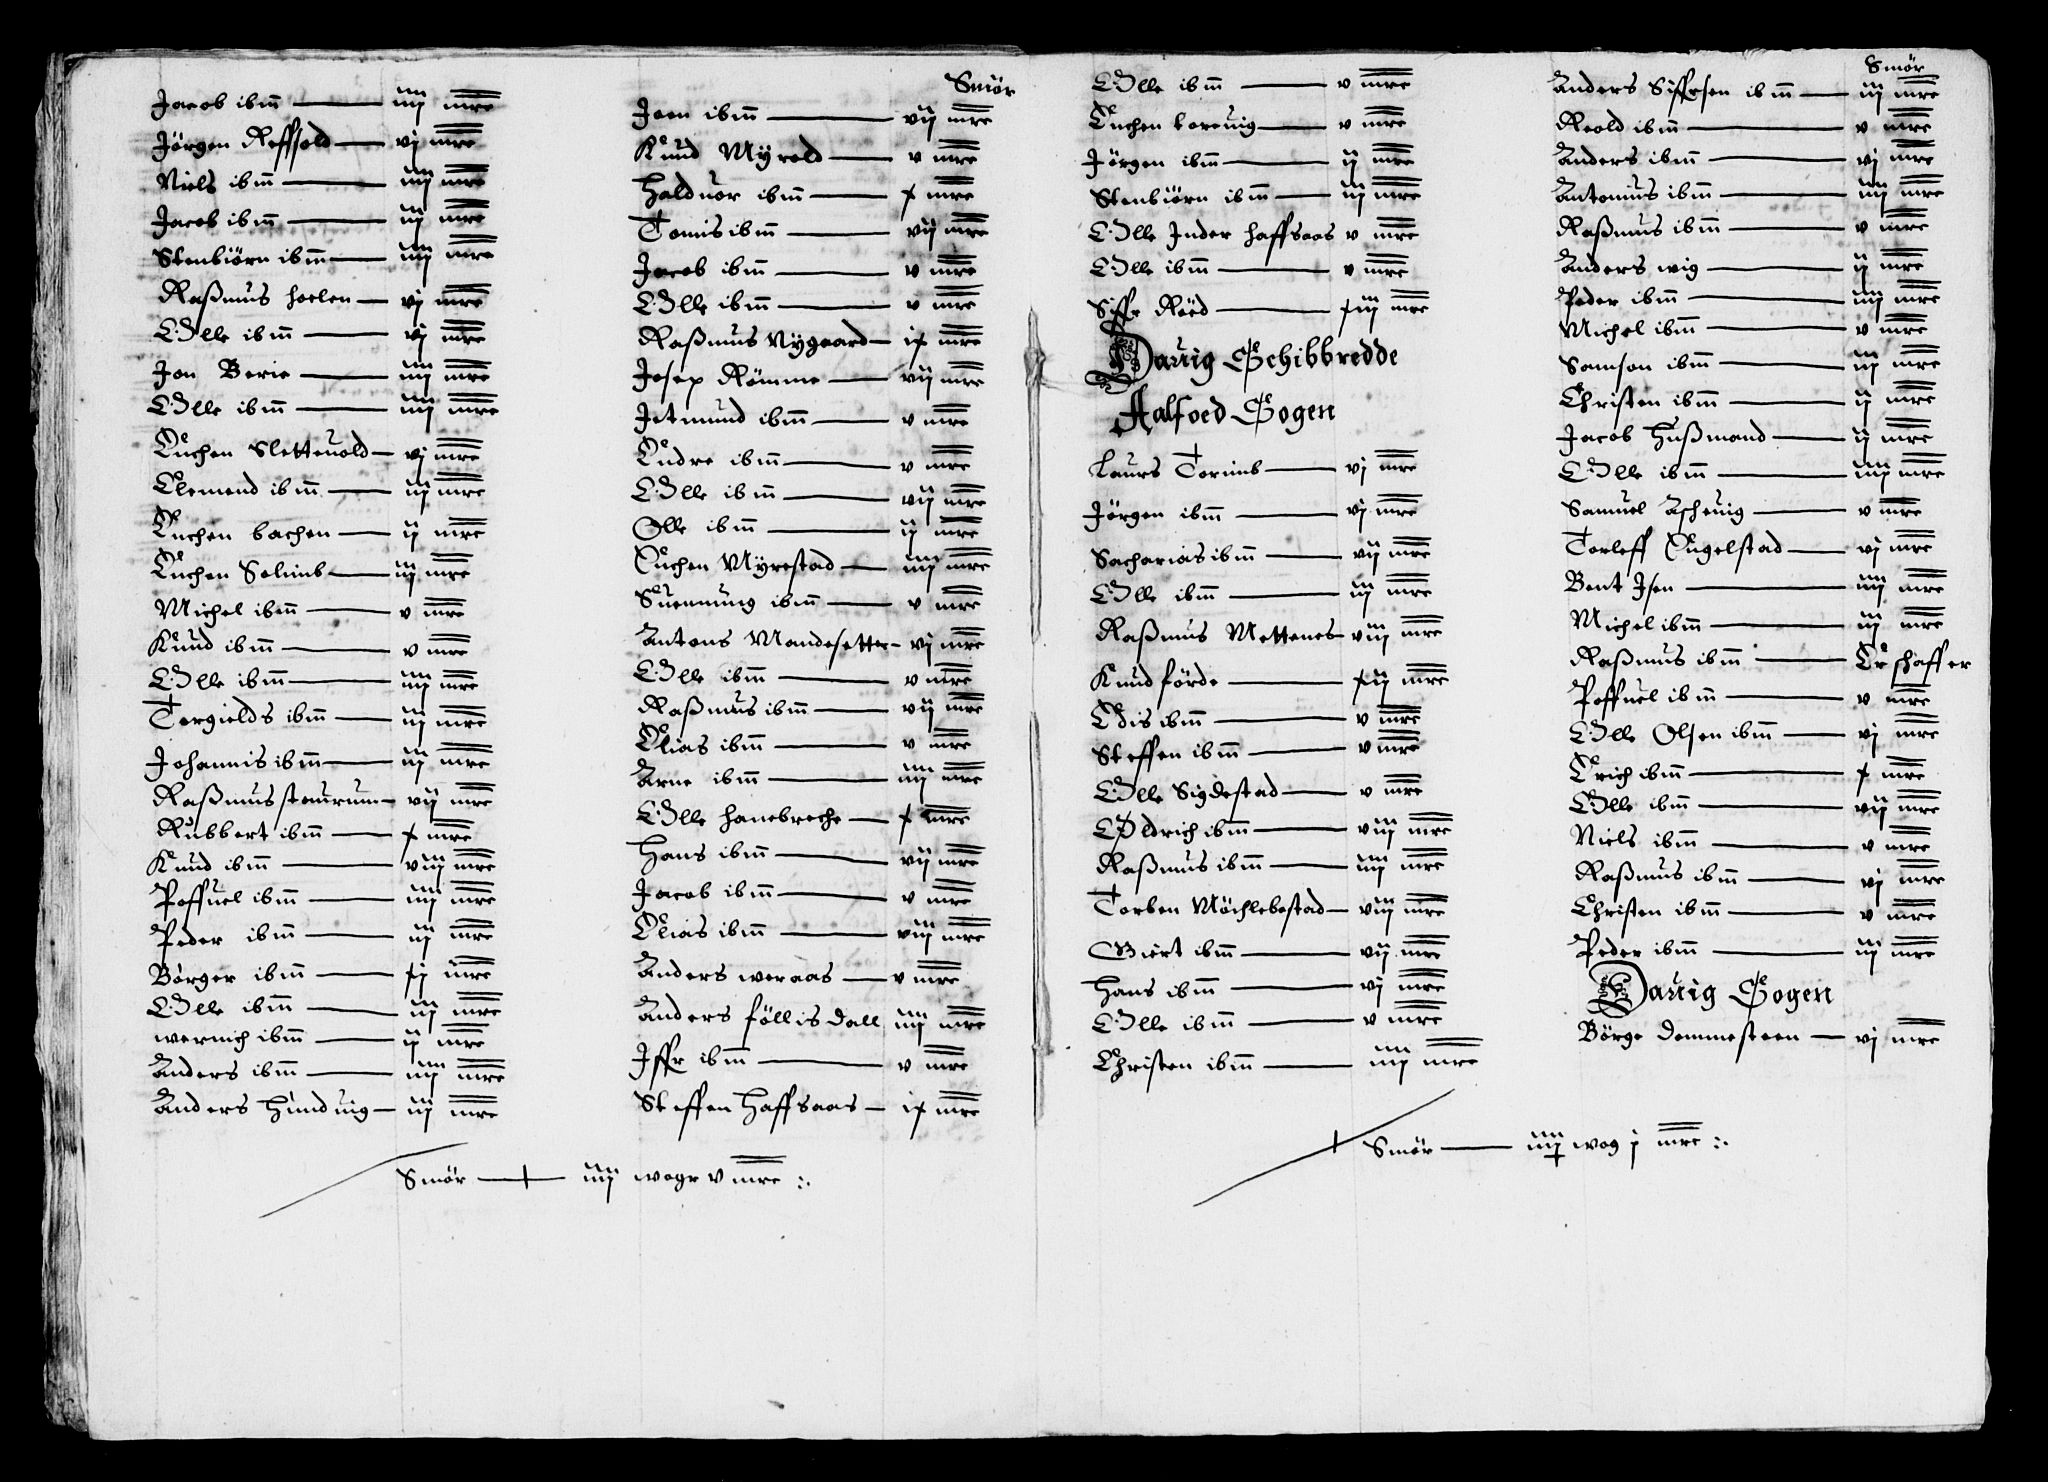 Jacob ibm̄ — iiij mrc
Jörgen Reffsold — vj mrc
Niels ibm̄ — iiij mrc
Jacob ibm̄ — iij mrc
Stenbiörn ibm̄ — iiij mrc
Raßmus hoelen — vj mrc
Olle ibm̄ — vj mrc
Jon Berie — iiij mrc
Olle ibm̄ — iiij mrc
Enchen Sletteuold — vj mrc
Clemend ibm̄ — iij mrc
Enchen bachen — ij mrc
Enchen Solimb — iij mrc
Michel ibm̄ — v mrc
Knud ibm̄ — v mrc
Olle ibm̄ — iiij mrc
Torgields ibm̄ — iij mrc
Johannis ibm̄ — iij mrc
Raßmus staurum — vij mrc
Rubbert ibm̄ — x mrc
Knud ibm̄ — viij mrc
Poffuel ibm̄ — iiij mrc
Peder ibm̄ — iij mrc
Börger ibm̄ — xj mrc
Olle ibm̄ — iij mrc
wernich ibm̄ — ij mrc
Anders ibm̄ — iiij mrc
Anders hunduig — iij mrc
Smör
Joen ibm̄ — vij mrc
Knud Myrold — v mrc
Halduor ibm̄ — x mrc
Tomis ibm̄ — vij mrc
Jacob ibm̄ — v mrc
Olle ibm̄ — v mrc
Raßmus Nygaard — ix mrc
Josep Römme — vij mrc
Jetmund ibm̄ — v mrc
Endre ibm̄ — v mrc
Olle ibm̄ — vij mrc
Olle ibm̄ — ij mrc
Enchen Myrestad — iiij mrc
Suennung ibm̄ — v mrc
Antons Mandesetter — vj mrc
Olle ibm̄ — v mrc
Raßmus ibm̄ — vij mrc
Elias ibm̄ — v mrc
Arne ibm̄ — iiij mrc
Olle hanebreche — x mrc
Hans ibm̄ — vij mrc
Jacob ibm̄ — v mrc
Elias ibm̄ — viij mrc
Anders weraas — v mrc
Anders föllisdall iiij mrc
Iffr ibm̄ — v mrc
Steffen Haffsaas — ix mrc
Smör — iiij wogr v mrc
Olle ibm̄ — v mrc
Enchen Loreuig — v mrc
Jörgen ibm̄ — ij mrc
Stenbiörn ibm̄ — iij mrc
Olle Inder Haffsaas v mrc
Olle ibm̄ — v mrc
Siffr Röed — xiij mrc
Dauig Schibbredde
Aalfoed Sogen
Laurs Torimb — vj mrc
Jörgen ibm̄ — vj mrc
Sacharias ibm̄ — vij mrc
Olle ibm̄ — iij mrc
Raßmus Mettenes viij mrc
Knud förde — xij mrc
Edis ibm̄ — v mrc
Steffen ibm̄ — v mrc
Olle Sigdestad — v mrc
Oldrich ibm̄ — viij mrc
Raßmus ibm̄ — iiij mrc
Torben Möchlebostad — viij mrc
Giert ibm̄ — vij mrc
Hans ibm̄ — vj mrc
Olle ibm̄ — v mrc
Christen ibm̄ — iiij mrc
Smör
Anders Siffrsen ibm̄ — iij mrc
Reold ibm̄ — v mrc
Anders ibm̄ — vj mrc
Antonius ibm̄ — iiij mrc
Raßmus ibm̄ — v mrc
Anders wig — ij mrc
Peder ibm̄ — iiij mrc
Michel ibm̄ — v mrc
Samson ibm̄ — iij mrc
Christen ibm̄ — ij mrc
Jacob Hußmand — ij mrc
Olle ibm̄ — iiij mrc
Samuel Ascheuig — v mrc
Torleff Engelstad — vj mrc
Bent Isen — iiij mrc
Michel ibm̄ — iij mrc
Raßmus ibm̄ — schaffer
Poffuel ibm̄ — v mrc
Olle Olsen ibm̄ — vj mrc
Erich ibm̄ — x mrc
Olle ibm̄ — vij mrc
Niels ibm̄ — v mrc
Raßmus ibm̄ — vj mrc
Christen ibm̄ — v mrc
Peder ibm̄ — iij mrc
Dauig Sogen
Börge Dommesteen — vj mrc
Smör — iiij wog j mrc